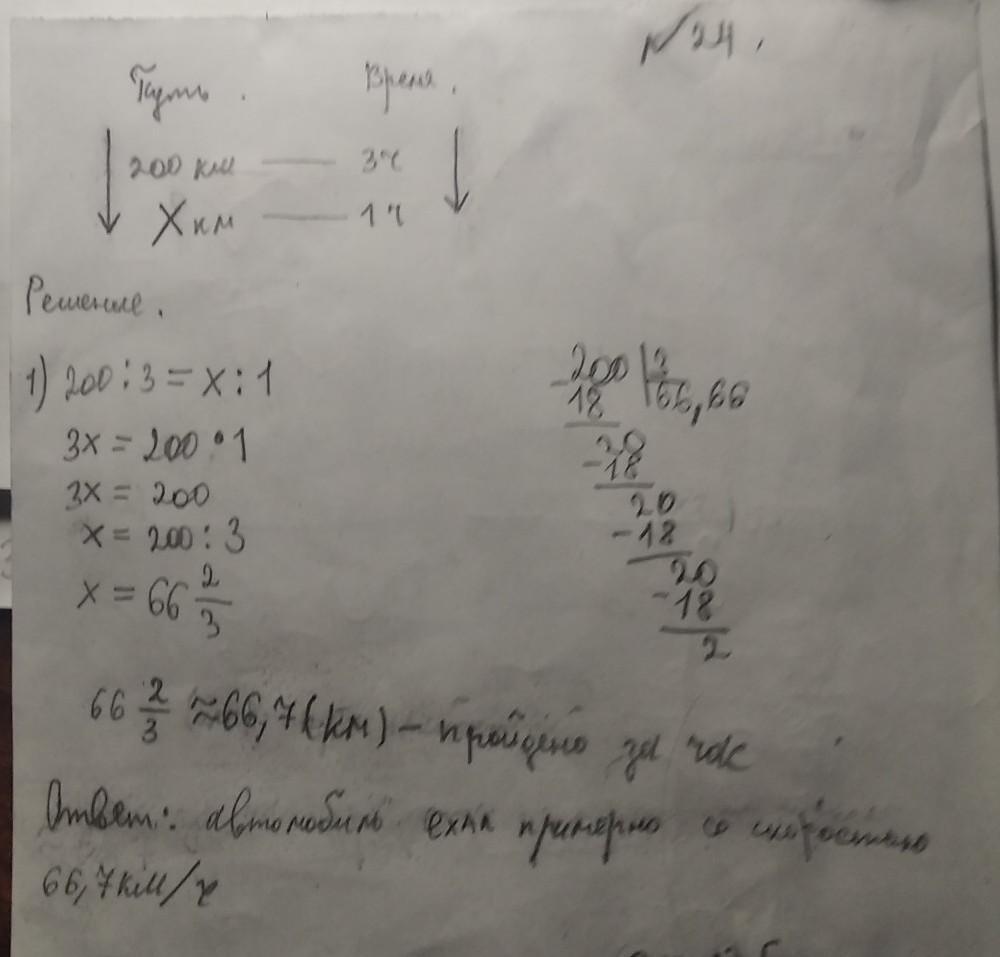 №24.
Путь. Время.
200 км — 3ч
X км — 1ч
Решение.
1) 200:3=x:1
3x=200•1
3x=200
x=200:3
x=66 2/3
200 | 3
-18 | 66,66
20
-18
20
-18
20
-18
2
66 2/3 ≈66,7(км) – пройдено за час
Ответ: автомобиль ехал примерно со скоростью
66,7км/ч